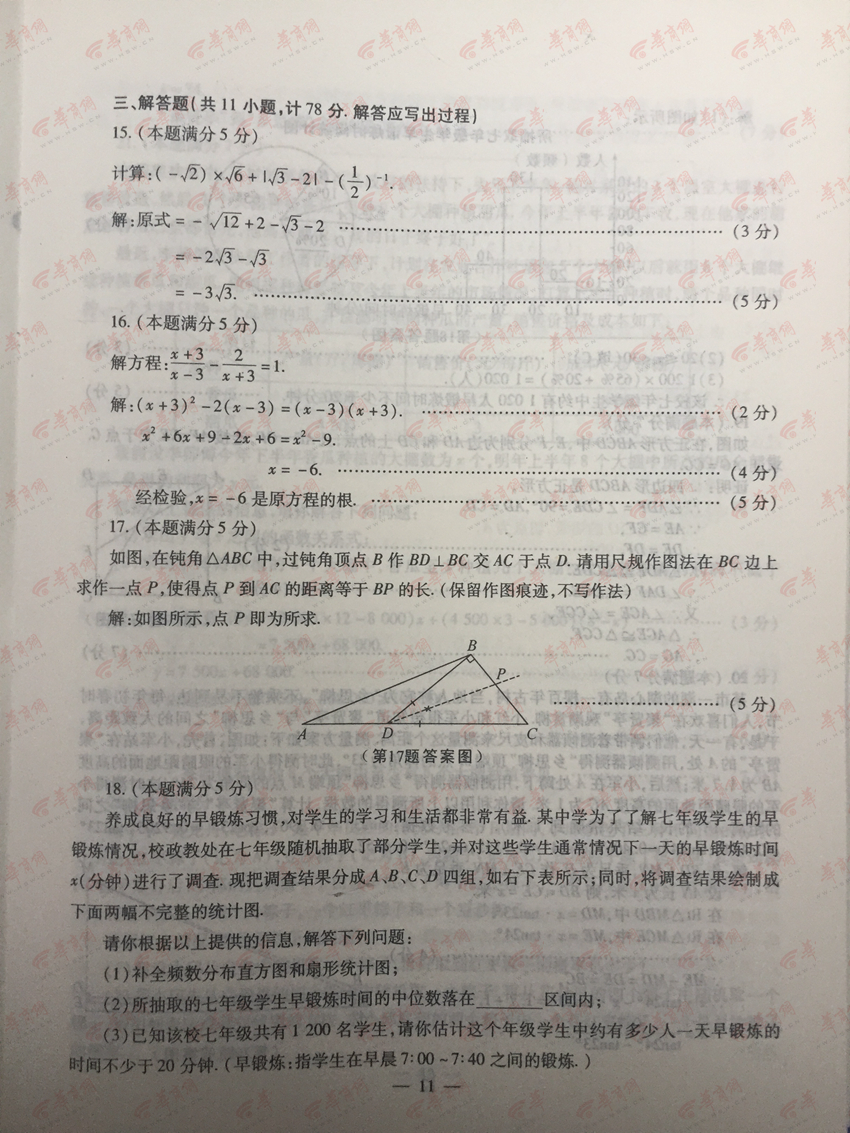 三、解答题(共11小题,计78分.解答应写出过程)
15.(本题满分5分)
计算:(-√2)×√6+|√3-2|-(1/2)⁻¹.
解:原式=-√12+2-√3-2 ……………………(3分)
=-2√3-√3
=-3√3. ……………………(5分)
16.(本题满分5分)
解方程:(x+3)/(x-3)-2/(x+3)=1.
解:(x+3)²-2(x-3)=(x-3)(x+3). ……………………(2分)
x²+6x+9-2x+6=x²-9.
x=-6. ……………………(4分)
经检验,x=-6是原方程的根. ……………………(5分)
17.(本题满分5分)
如图,在钝角△ABC中,过钝角顶点B作BD⊥BC交AC于点D.请用尺规作图法在BC边上
求作一点P,使得点P到AC的距离等于BP的长.(保留作图痕迹,不写作法)
解:如图所示,点P即为所求.
B
P
……………………(5分)
A D C
(第17题答案图)
18.(本题满分5分)
养成良好的早锻炼习惯,对学生的学习和生活都非常有益.某中学为了了解七年级学生的早
锻炼情况,校政教处在七年级随机抽取了部分学生,并对这些学生通常情况下一天的早锻炼时间
x(分钟)进行了调查.现把调查结果分成A、B、C、D四组,如右下表所示;同时,将调查结果绘制成
下面两幅不完整的统计图.
请你根据以上提供的信息,解答下列问题:
(1)补全频数分布直方图和扇形统计图;
(2)所抽取的七年级学生早锻炼时间的中位数落在______区间内;
(3)已知该校七年级共有1 200名学生,请你估计这个年级学生中约有多少人一天早锻炼的
时间不少于20分钟.(早锻炼:指学生在早晨7:00~7:40之间的锻炼.)
— 11 —